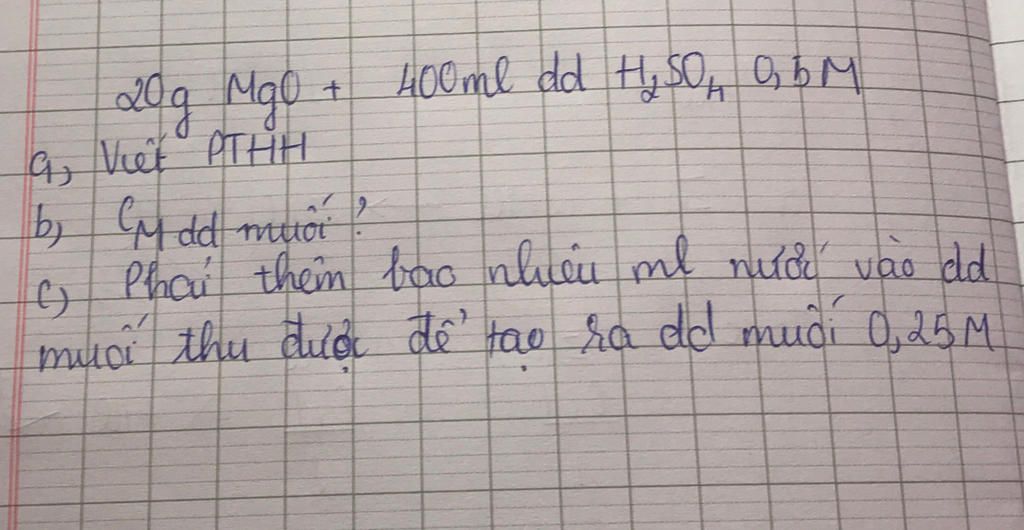 20g MgO + 400ml dd H₂SO₄ 0,5M
a, Viết PTHH
b, CM dd muối?
c, Phải thêm bao nhiêu ml nước vào dd
muối thu được để tạo ra dd muối 0,25M